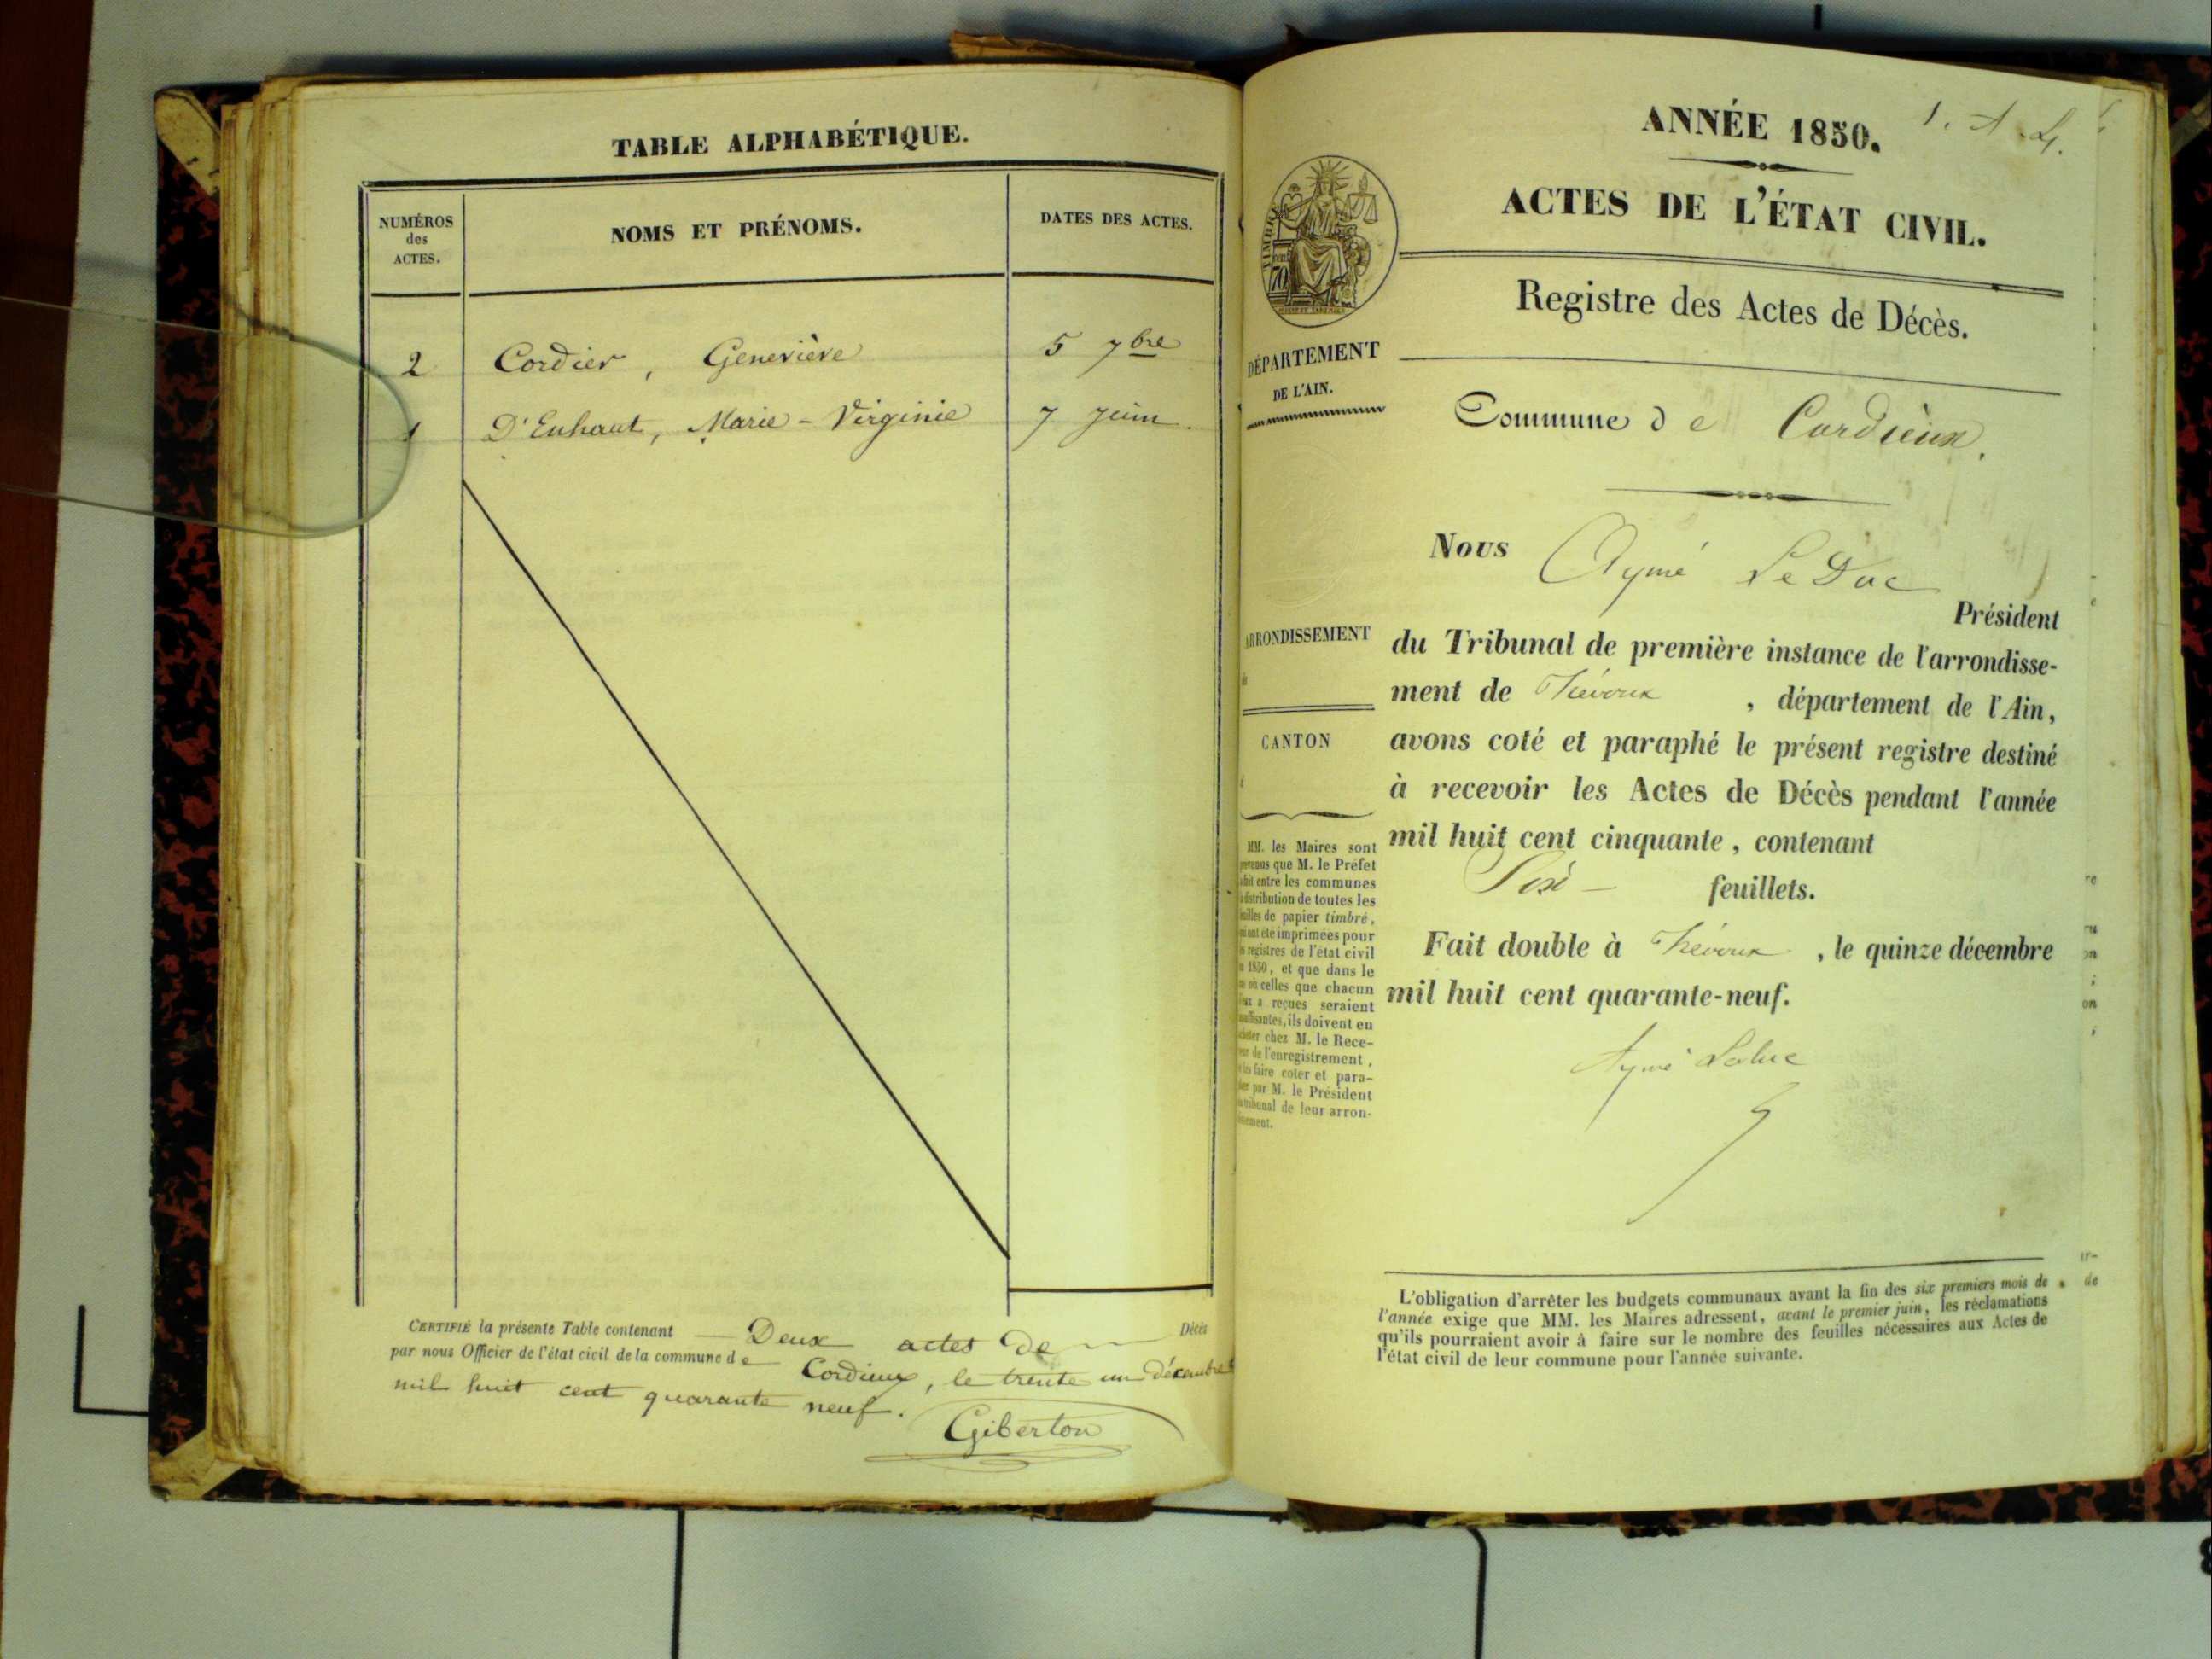 TABLE ALPHABÉTIQUE.
NUMÉROS
des
ACTES.
NOMS ET PRÉNOMS.
DATES DES ACTES.
2 Cordier, Geneviève 5 7bre
1 D'Enhaut, Marie-Virginie 7 juin.
CERTIFIÉ la présente Table contenant Deux actes de Décès
par nous Officier de l'état civil de la commune de Cordieux, le trente un décembre
mil huit cent quarante neuf.
Giberton
ANNÉE 1850.
ACTES DE L'ÉTAT CIVIL.
TIMBRE
70
Registre des Actes de Décès.
DÉPARTEMENT
DE L'AIN.
Commune de Cordieux.
Nous Aymé LeDuc
Président
ARRONDISSEMENT
du Tribunal de première instance de l'arrondisse-
ment de Trévoux, département de l'Ain,
CANTON
avons coté et paraphé le présent registre destiné
à recevoir les Actes de Décès pendant l'année
mil huit cent cinquante, contenant
Six feuillets.
Fait double à Trévoux, le quinze décembre
mil huit cent quarante-neuf.
Aymé Leduc
MM. les Maires sont
que M. le Préfet
fait entre les communes
distribution de toutes les
feuilles de papier timbré,
ont été imprimées pour
registres de l'état civil
1850, et que dans le
où celles que chacun
a reçues seraient
insuffisantes, ils doivent en
acheter chez M. le Rece-
de l'enregistrement,
faire coter et para-
par M. le Président
tribunal de leur arron-
L'obligation d'arrêter les budgets communaux avant la fin des six premiers mois de
l'année exige que MM. les Maires adressent, avant le premier juin, les réclamations
qu'ils pourraient avoir à faire sur le nombre des feuilles nécessaires aux Actes de
l'état civil de leur commune pour l'année suivante.